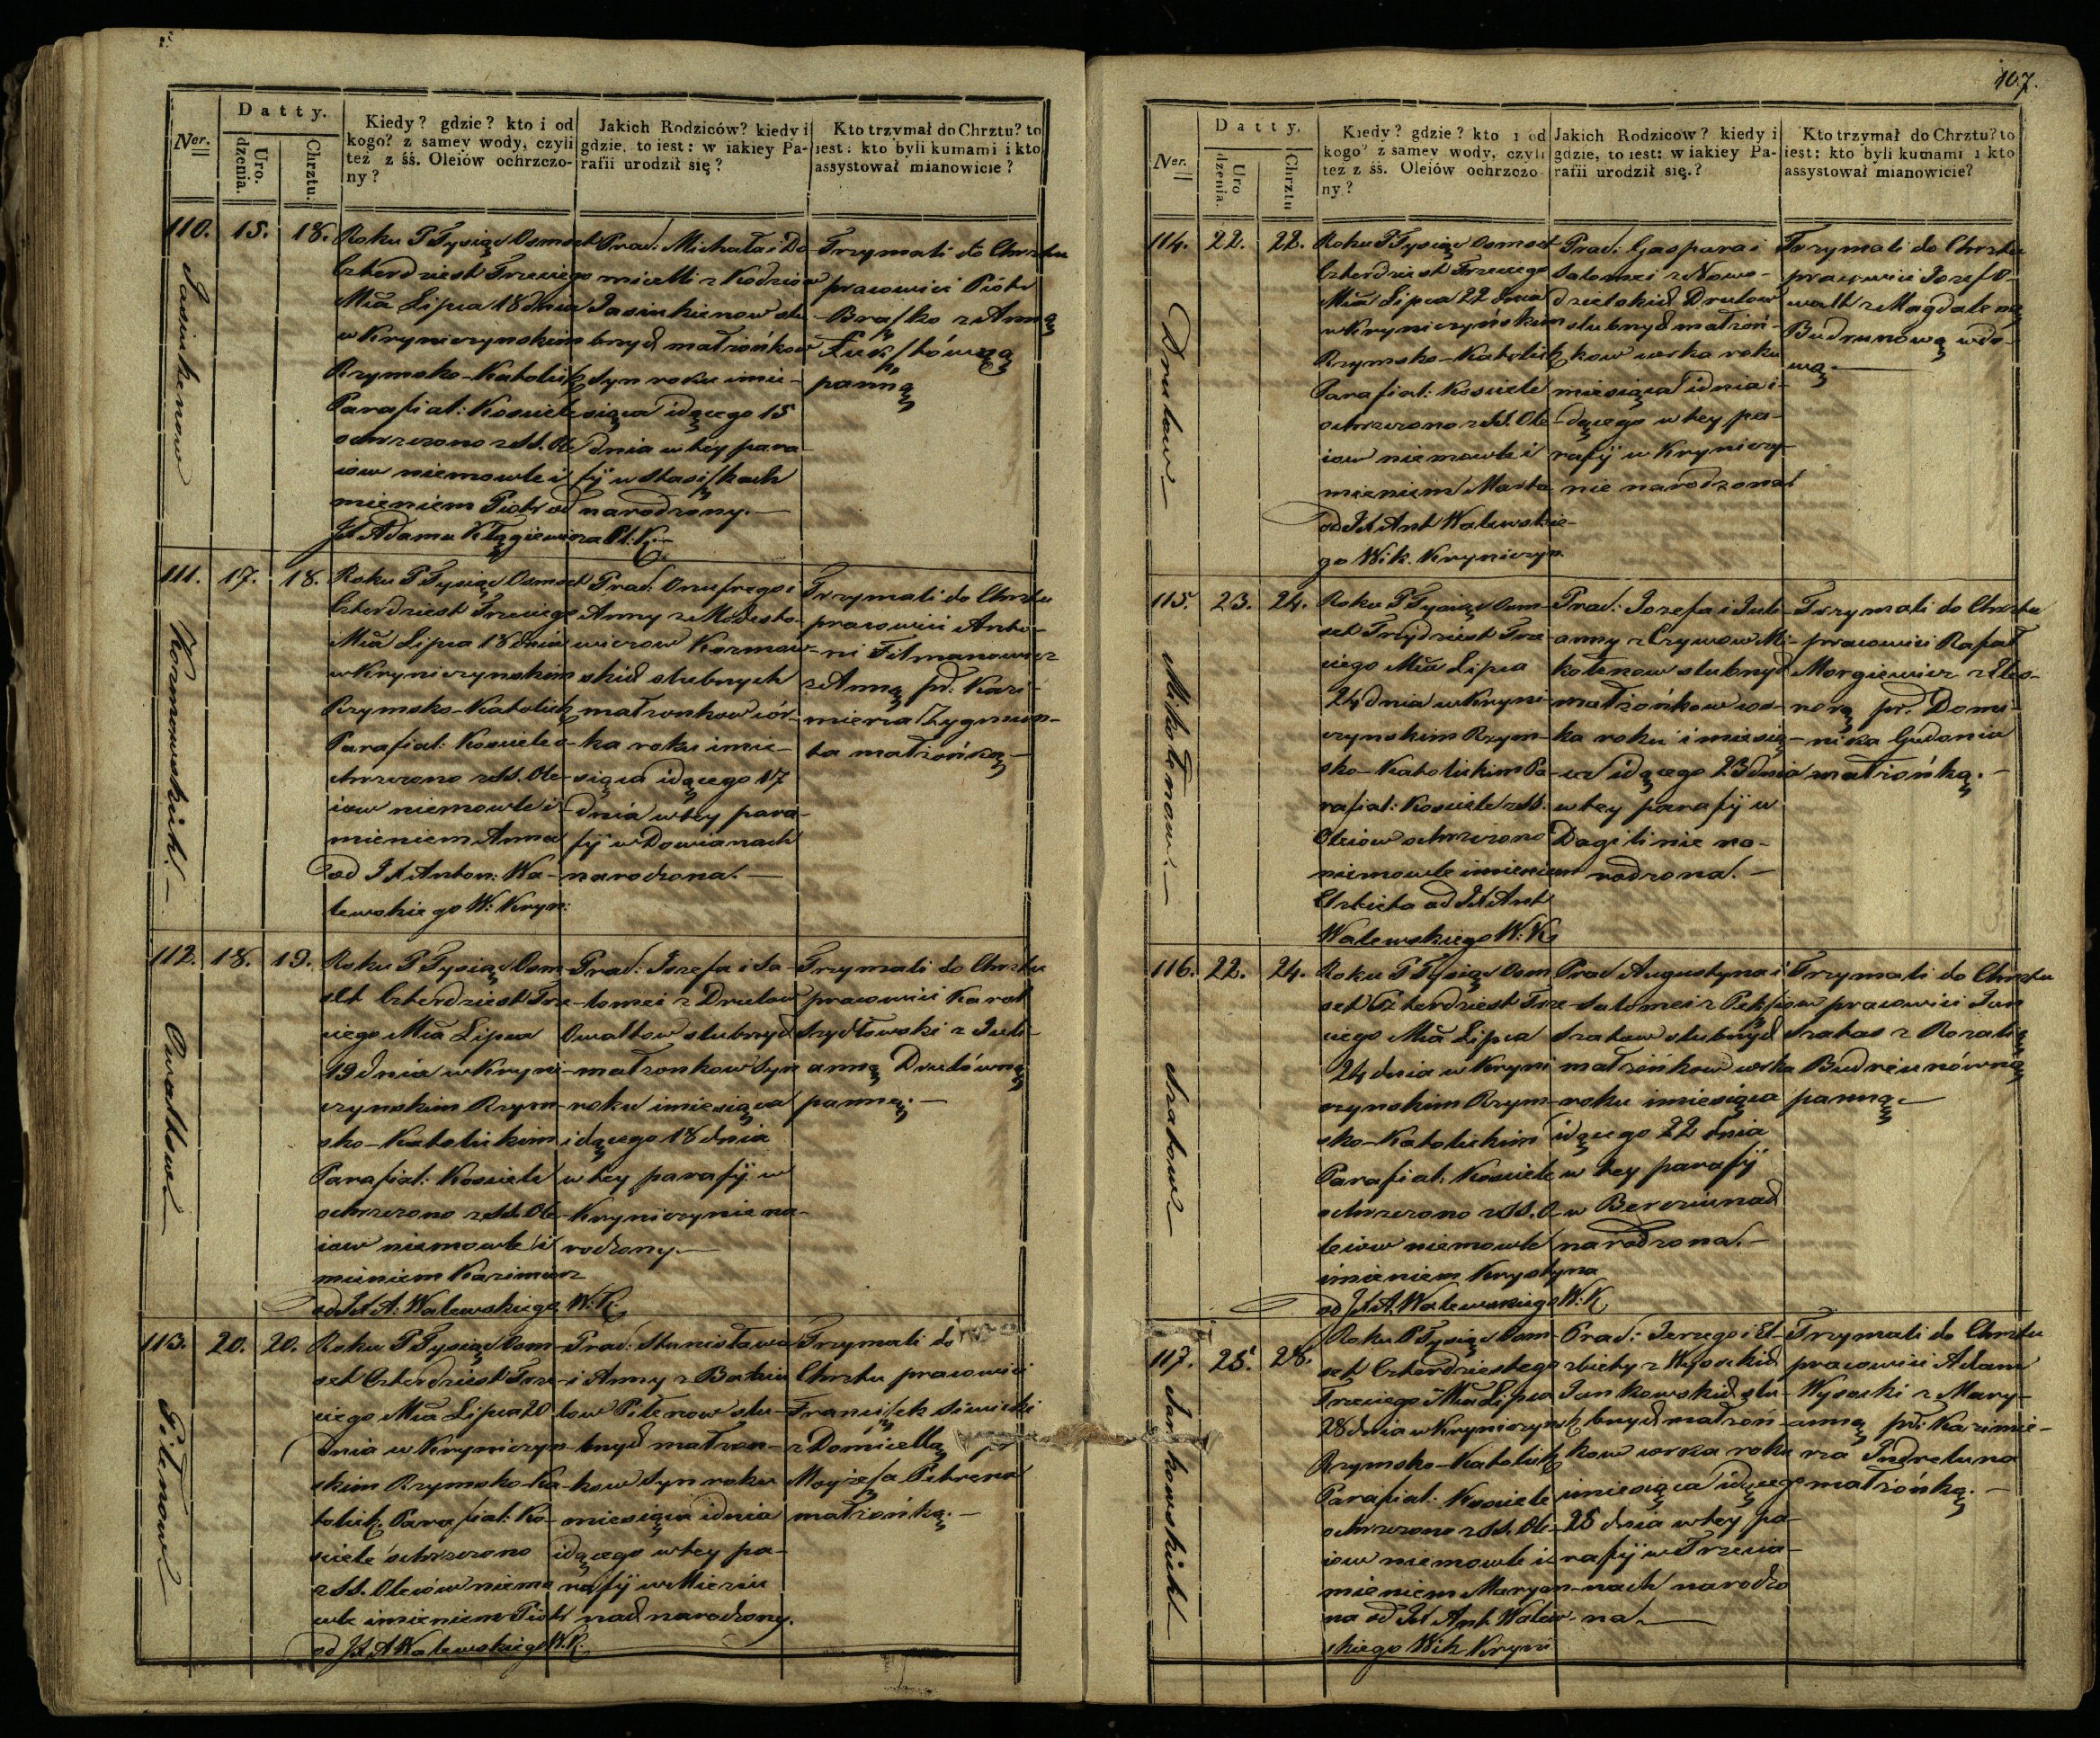 107.
Datty.
Ner.
Uro.
dzenia.
Chrztu.
Kiedy? gdzie? kto i od
kogo? z samey wody, czyli
też z śś. Oleiów ochrzczo-
ny?
Jakich Rodziców? kiedy i
gdzie, to iest: w iakiey Pa-
rafii urodził się?
Kto trzymał do Chrztu? to
iest: kto byli kumami i kto
assystował mianowicie?
110.
15.
18.
Jasiukienow
Roku P Tysiąc Osmset
Czterdziest Trzeciego
Mca Lipca 18 dnia
w Kryniczynskim
Rzymsko-Katolick
Parafial: Kosciele
ochrzczono z SS. Ole
iow niemowle i
mieniem Piotr od
JX Adama Klągiewicza Pl: K.
Prac: Michała i Do
micelli z Kodziow
Jasiukienow slu
bnych małżonkow
Syn roku i mie-
siąca idącego 15
dnia w tey para
fij w Stasiszkach
narodzony.
Trzymali do Chrztu
pracowici Piotr
Braszko z Anną
panną
111.
17.
18.
Kozmowskich.
Roku P Tysiąc Osmset
Czterdziest Trzeciego
Mca Lipca 18 dnia
w Kryniczynskim
Rzymsko-Katolick
Parafial: Kosciele o-
chrzczono z SS. Ole-
iow niemowle i
mieniem Anna
od JX Anton: Wa-
lewskiego W: Kryn:
Prac: Onufrego i
Anny z Modesto-
wiczow Kozmow-
skich slubnych
małzonkow cór-
ka roku i mie-
siąca idącego 17
dnia w tey para-
fij w Dowianach
narodzona.
Trzymali do Chrztu
pracowici Anto-
ni Filmanowicz
z Anną pr: Kazi-
mierza Zygmun-
ta małżonką
112.
18.
19.
Owaltow
Roku P Tysiąc Osm-
set Czterdziest Trze-
ciego Mca Lipca
19 dnia w Kryni-
czynskim Rzym-
sko-Katolickim
Parafial: Kosciele
ochrzczono z SS. Ole-
iow niemowle i
mieniem Kazimierz
od JX A: Walewskiego W: K.
Prac: Jozefa i Sa-
lomei z Drutow
Owaltow slubnych
małzonkow Syn
roku i miesiąca
idącego 18 dnia
w tey parafij w
Kryniczynie na-
rodzony.
Trzymali do Chrztu
pracowici Karol
Szydłowski z Juli-
anną Drutówną
panną.
113.
20.
20.
Pilenow
Roku P Tysiąc Osm-
set Czterdziest Trze-
ciego Mca Lipca 20
dnia w Kryniczyn-
skim Rzymsko-Ka-
tolick. Parafial: Ko-
sciele ochrzczono
z SS. Oleiów niemo
wle imieniem Piotr
od JX A Walewskiego W. K.
Prac: Stanisława
i Anny z
Pilenow slu-
bnych małzon-
kow Syn roku
miesiąca i dnia
idącego w tey pa-
rafij w
narodzony.
Trzymali do
Chrztu pracowici
Franciszek Siwicki
z Domicellą pr
Moyzesza Petrena
małżonką.
Datty.
Ner.
Uro
dzenia.
Chrztu
Kiedy? gdzie? kto i od
kogo? z samey wody, czyli
też z śś. Oleiów ochrzczo
ny?
Jakich Rodziców? kiedy i
gdzie, to iest: w iakiey Pa-
rafii urodził się.?
Kto trzymał do Chrztu? to
iest: kto byli kumami i kto
assystował mianowicie?
114.
22.
22.
Drutow
Roku P Tysiąc Osmset
Czterdziest Trzeciego
Mca Lipca 22 dnia
w Krynirzyńskim
Rzymsko-Katolick
Parafial: Kosciele
ochrzczono z SS. Ole-
iow niemowle i
mieniem Marta
od JX Ant Walewskie-
go Wik. Krynicyn
Prac: Gaspara i
Salomei z Nowo-
dzielskich Drutow
slubnych małżoń-
kow corka roku
miesiąca i dnia i-
dącego w tey pa-
rafij w Kryniczy-
nie narodzona
Trzymali do Chrztu
pracowici Jozef O-
walt z Magdaleną
Budrunową wdo-
wą.
115.
23.
24.
Mikołenow.
Roku P Tysiąc Osm-
set Trzydziest Trze-
ciego Mca Lipca
24 dnia w Kryni-
czynskim Rzym-
sko-Katolickim Pa-
rafial: Kosciele z SS.
Oleiow ochrzczono
niemowle imieniem
Elzbieta od JX Ant
Walewskiego W: K
Prac: Jozefa i Juli-
anny z Czywow Mi-
kołenow slubnych
małżońkow cor-
ka roku i miesią-
ca idącego 23 dnia
w tey parafij w
Dagilinie na-
rodzona.
Trzymali do Chrztu
pracowici Rafał
Morgiewicz z Eleo-
norą pr. Domi-
nika Gudania
małżońką.
116.
22.
24.
Szatow
Roku P Tysiąc Osm
set Czterdziest Trze-
ciego Mca Lipca
24 dnia w Kryni
czynskim Rzym-
sko-Katolickim
Parafial. Kosciele
ochrzczono z SS. O-
leiów niemowle
imieniem Krystyna
od JX A. Walewskiego W. K
Prac Augustyna i
Salomei z
Szatow slubnych
małżońkow corka
roku i miesiąca
idącego 22 dnia
w tey parafij
w
narodzona.
Trzymali do Chrztu
pracowici Jan
Szatas z Rozalią
Budreunówną
panną.
117.
25.
28.
Jankowskich
Roku P Tysiąc Osm-
set Czterdziestego
Trzeciego Mca Lipca
28 dnia w Krynirzynsk
Rzymsko-Katolick
Parafial: Kosciele
ochrzczono z SS. Ole-
iow niemowle i
mieniem Maryan-
na od JX Ant. Walew-
skiego Wik Kryni
Prac: Jerzego i El-
zbiety z Wysockich
Jankowskich slu-
bnych małzoń-
kow corka roku
i miesiąca idącego
25 dnia w tey pa-
rafij w Trzecia-
nach narodzo
na.
Trzymali do Chrztu
pracowici Adam
Wysocki z Mary-
anną pr: Kazimie-
rza
małżońką.